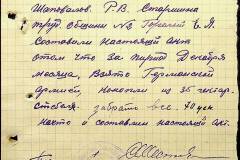 Шаповалов. Р.В. Старшина
труд. общины №3 Горелой Е.Я
Составили настоящий Акт
о том что за период Декабря
месяца, Взято Германской
Армией, коноплі из 35 гектар.
забрато все. 40 цен
на что и составили настоящий Акт.